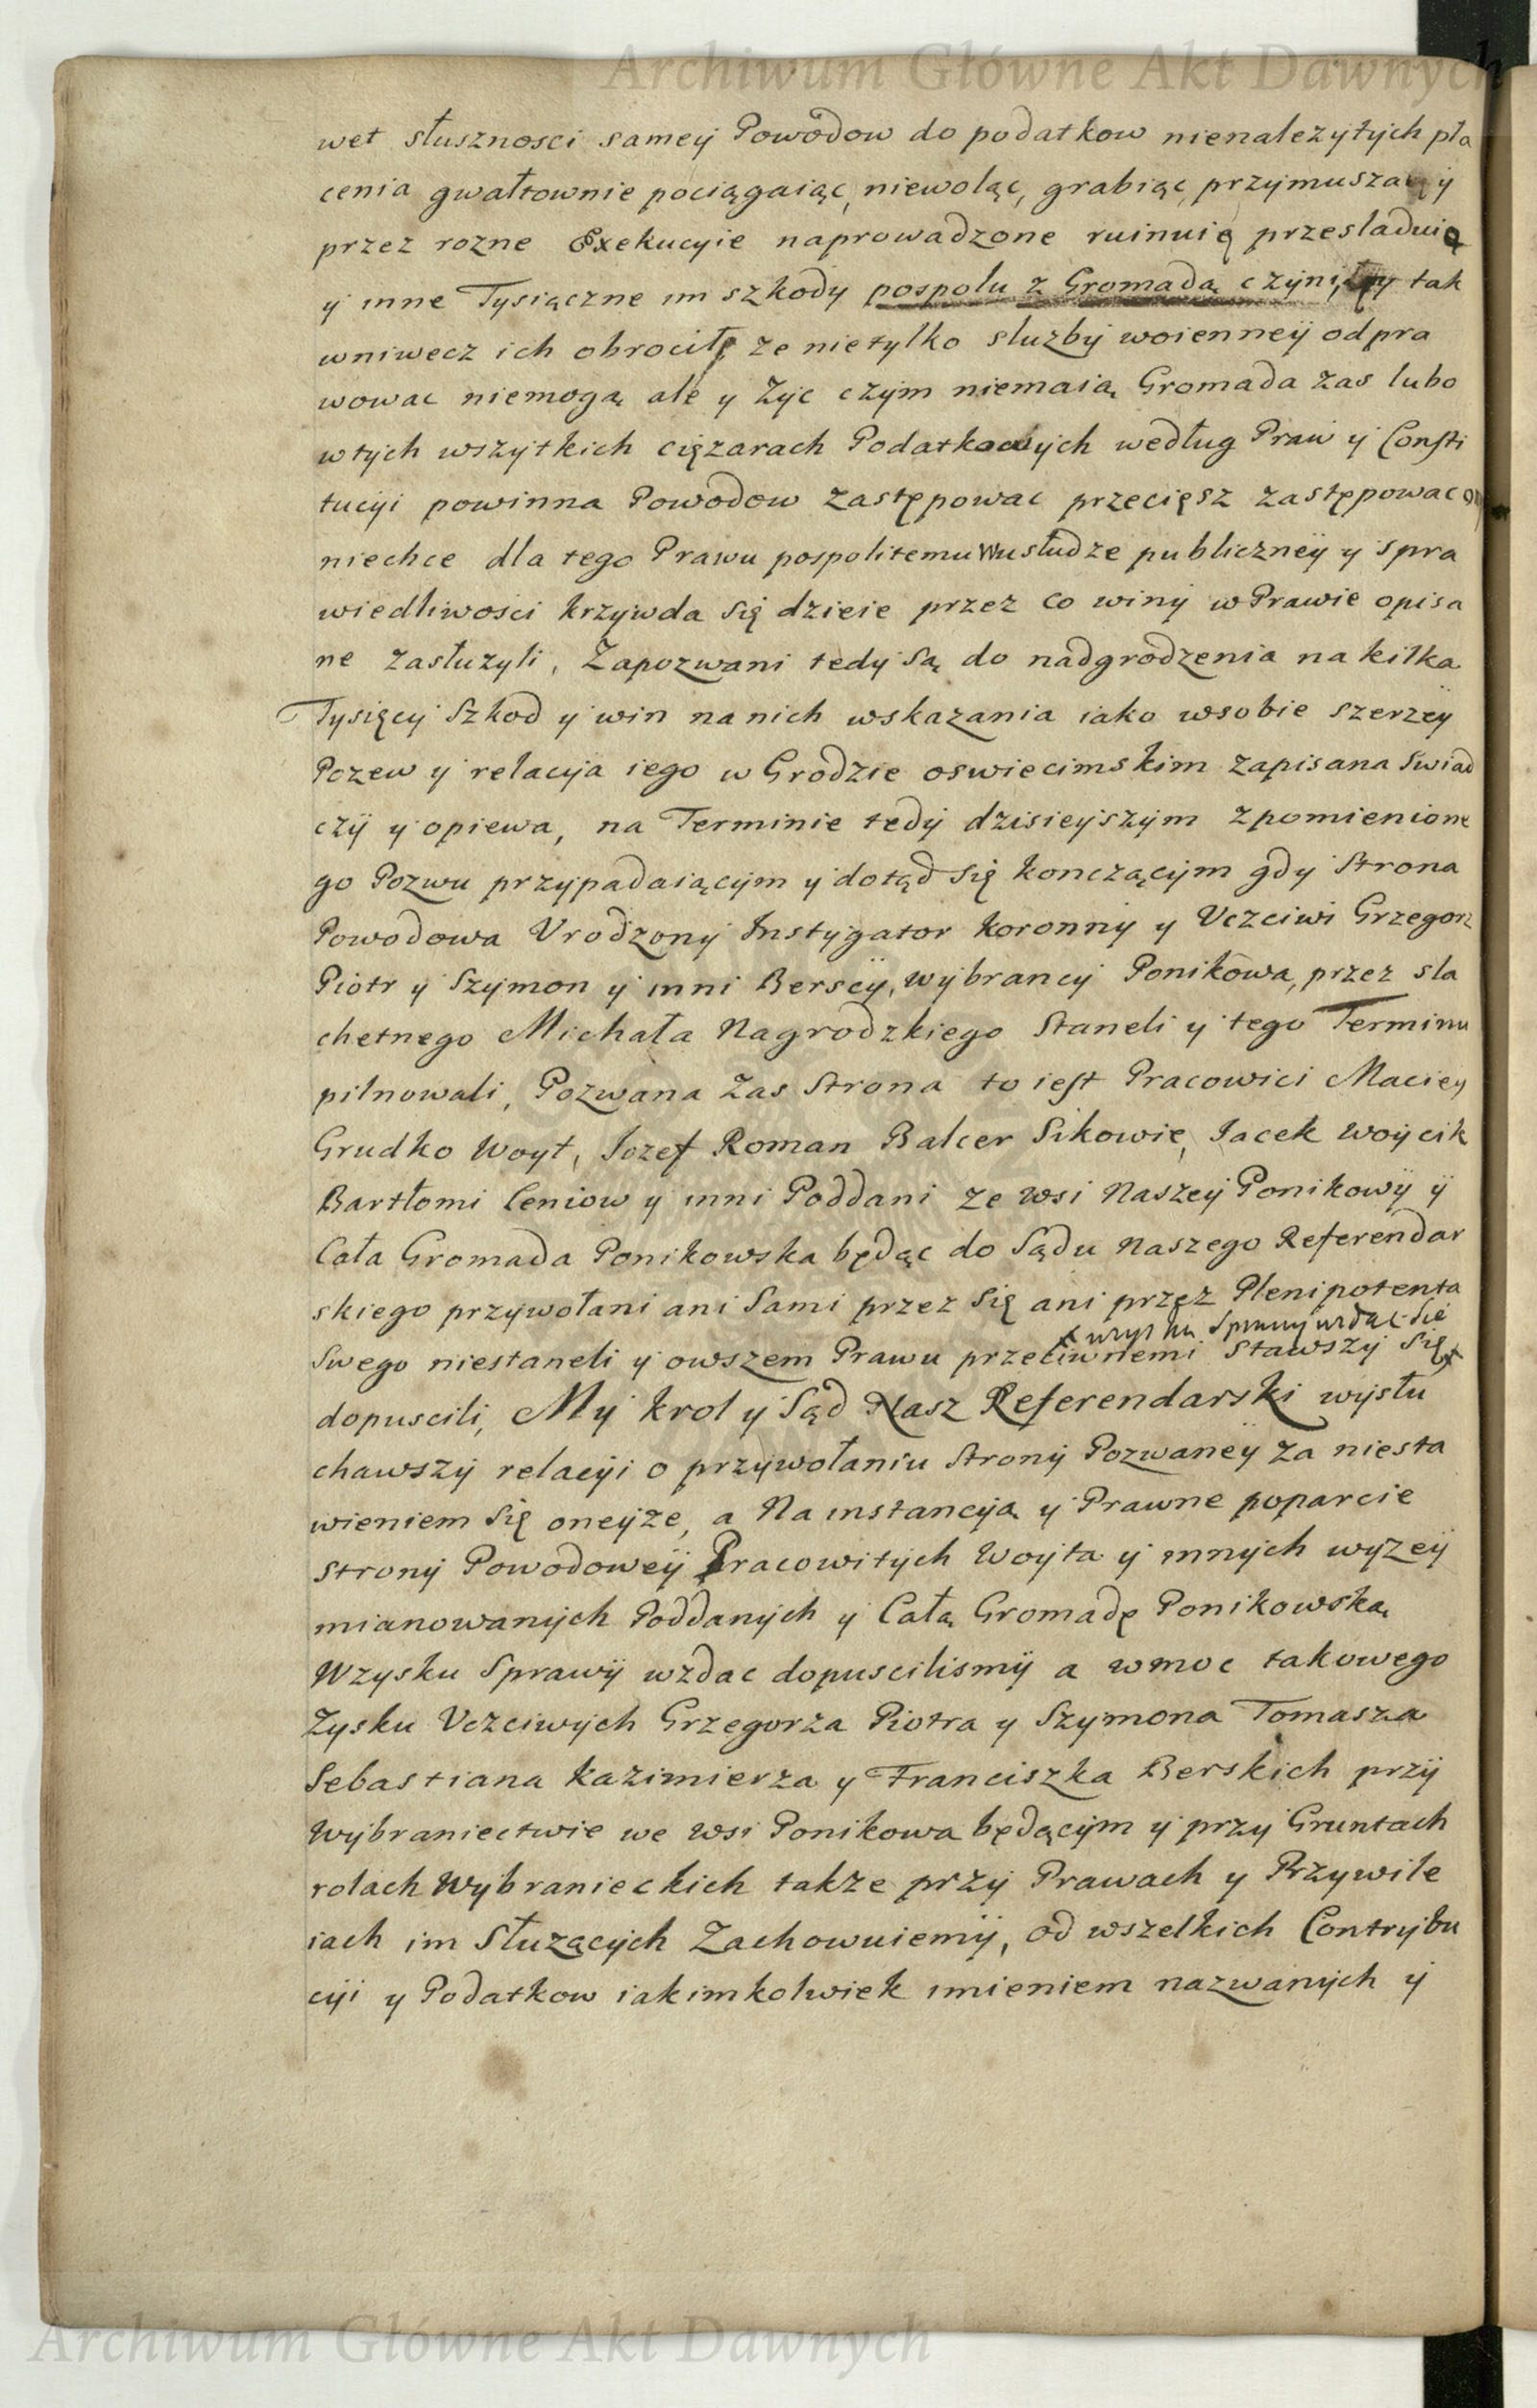 Archiwum Główne Akt Dawnych
wet słusznosci samey Powodow do podatkow nienalezytych pła
cenia gwałtownie pociągaiąc, niewoląc, grabiąc, przymuszaiąc y
przez rozne Exekucyie naprowadzone ruinuią przesladuią
y inne Tysiączne im szkody pospolu z Gromadą czynią y tak
wniwecz ich obrocili ze nietylko sluzby woienney odpra
wowac niemogą ale y zyc czym niemaią Gromada zas lubo
wtych wszytkich cięzarach Podatkowych według Praw y Consti
tucyi powinna Powodow zastępowac przecięsz zastępowac
niechce dla tego Prawu pospolitemu usłudze publiczney y spra
wiedliwosci krzywda się dzieie przez co winy w Prawie opisa
ne zasłuzyli, Zapozwani tedy są do nadgrodzenia na kilka
Tysięcy szkod y win na nich wskazania iako wsobie szerzey
Pozew y relacyia iego w Grodzie oswiecimskim zapisana swiad
czy y opiewa, na Terminie tedy dzisieyszym zpomienione
go Pozwu przypadaiącym y dotąd się konczącym gdy Strona
Powodowa Vrodzony Instygator koronny y Vczciwi Grzegorz
Piotr y Szymon y inni Berscy, wybrancy Ponikowa, przez sla
chetnego Michała Nagrodzkiego Staneli y tego Terminu
pilnowali, Pozwana zas Strona to iest Pracowici Maciey
Grudko Woyt, Iozef Roman Balcer Sikowie, Iacek woycik
Bartłomi Ceniow y inni Poddani ze wsi Naszey Ponikowy y
Cała Gromada Ponikowska będąc do Sądu Naszego Referendar
skiego przywołani ani Sami przez się ani przez Plenipotenta
x wzysku sprawy wzdac się
Swego niestaneli y owszem Prawu przeciwnemi stawszy się x
dopuscili, My krol y Sąd Nasz Referendarski wysłu
chawszy relacyi o przywołaniu strony Pozwaney za niesta
wieniem się oneyze, a Na instancyią y Prawne poparcie
strony Powodowey Pracowitych Woyta y innych wyzey
mianowanych Poddanych y Całą Gromadę Ponikowską
Wzysku Sprawy wzdac dopuscilismy a wmoc takowego
Zysku Vczciwych Grzegorza Piotra y Szymona Tomasza
Sebastiana kazimierza y Franciszka Berskich przy
Wybraniectwie we wsi Ponikowa będącym y przy Gruntach
rolach Wybranieckich takze przy Prawach y Przywile
iach im Słuzących Zachowuiemy, od wszelkich Contrybu
cyi y Podatkow iakimkolwiek imieniem nazwanych y
Archiwum Główne Akt Dawnych